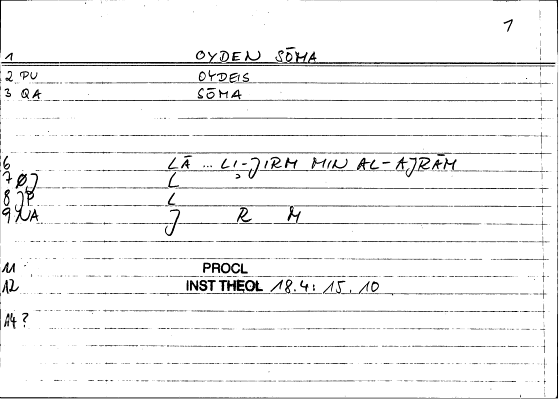 1
1 OYDEN SŌMA
2 PU OYDEIS
3 QA SŌMA
6 LĀ ... LI-JIRM MIN AL-AJRĀM
7 ØJ L ʾ
8 JP L
9 NA J R M
11 PROCL
12 INST THEOL 18.4: 15.10
14 ?